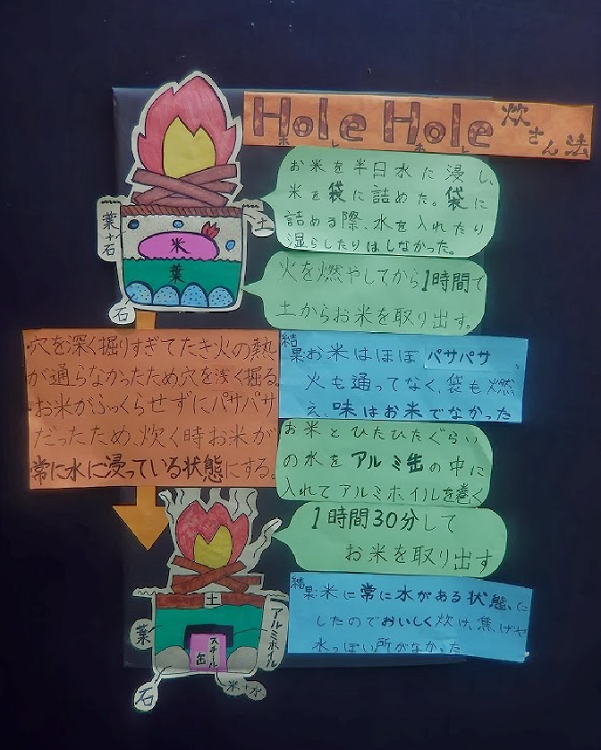 Hole Hole 炊さん法
ホレ ホレ
お米を半日水に浸し、
米を袋に詰めた。袋に
詰める際、水を入れたり
湿らしたりはしなかった。
葉+石
土
米
葉
石
火を燃やしてから1時間で
土からお米を取り出す。
結果
お米はほぼパサパサ、
火も通ってなく、袋も燃
え、味はお米でなかった
穴を深く掘りすぎてたき火の熱
が通らなかったため穴を浅く掘る。
お米がふっくらせずにパサパサ
だったため、炊く時お米が
常に水に浸っている状態にする。
お米とひたひたぐらい
の水をアルミ缶の中に
入れてアルミホイルを巻く
1時間30分して
お米を取り出す
結果:米に常に水がある状態に
したのでおいしく炊け、焦げや
水っぽい所がなかった
土
葉
アルミホイル
スチール缶
石
米+水